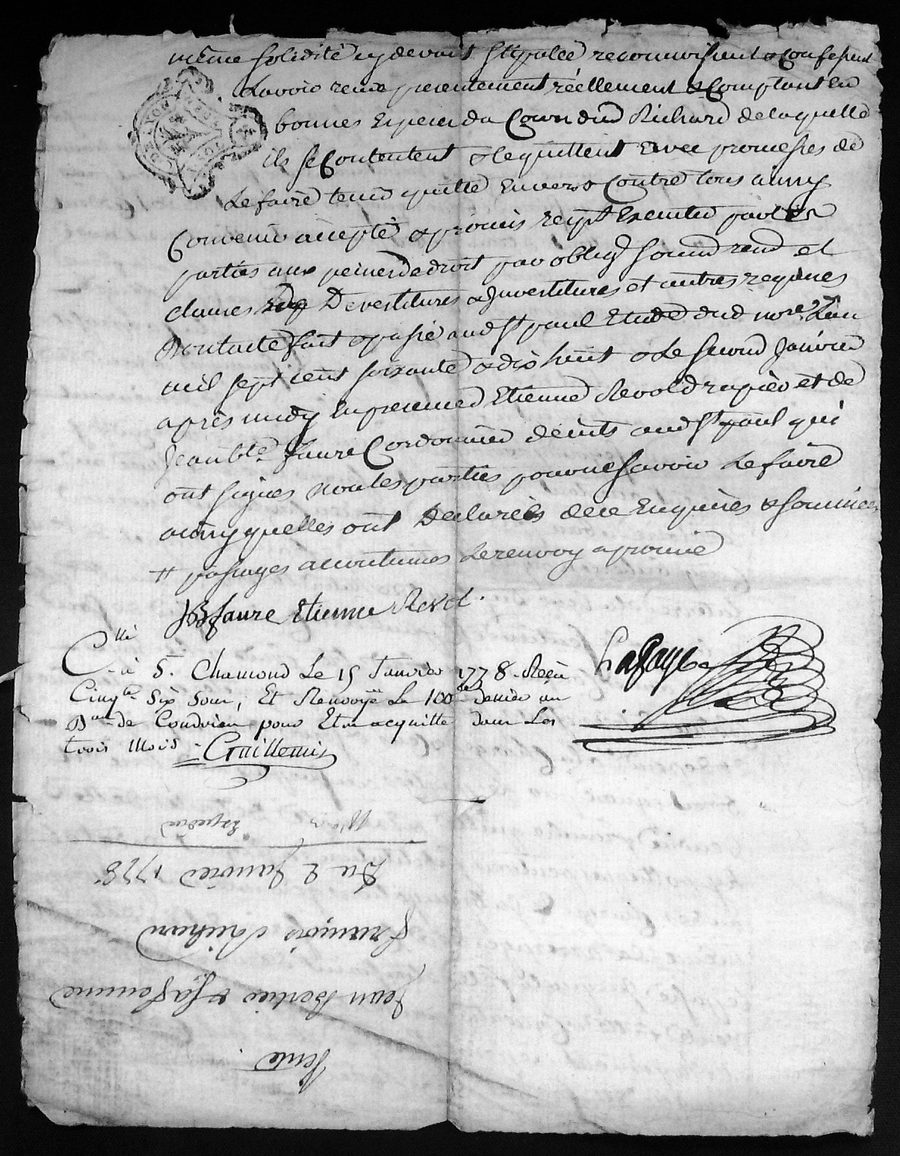 même solidité cy devant stipulée reconnoissent & confessent
L'avoir reçue presentement réellement & Comptant en
bonnes Especes du Cours dud Richard de laquelle
ils se Contentent & le quittent avec promesses de
Le faire tenir quitte Envers & Contre tous ainsy
Convenu accepté & promis par les
parties aux peines de droit par oblig Soum renon et
clauses Devestitures & Investitures et autres requises
Dont acte fait & passé aud St paul Etude dud nore L'an
mil sept cent soixante & dix huit & Le second Janvier
après midy En presence d'Etienne Revol drapier et de
Jean Bte faure Cordonnier de aud St paul qui
ont signés non les parties pour ne savoir Le faire
ainsy quelles ont Declarées de ce Enquises & sommées
# passages accoutumes Le renvoy aprouvé
JB faure Etienne Revol.
Clle
à S. Chamond Le 15 Janvier 1778. Reçu
Cinq Six Sous, Et Renvoyé Le 100e denier au
Bau de Condrieu pour Etre acquitté dans Les
trois Mois. Guillemin
Lafaye
Expedié
Du 2 Janvier 1778
François Richard
Jean Bertier & sa femme
Vente